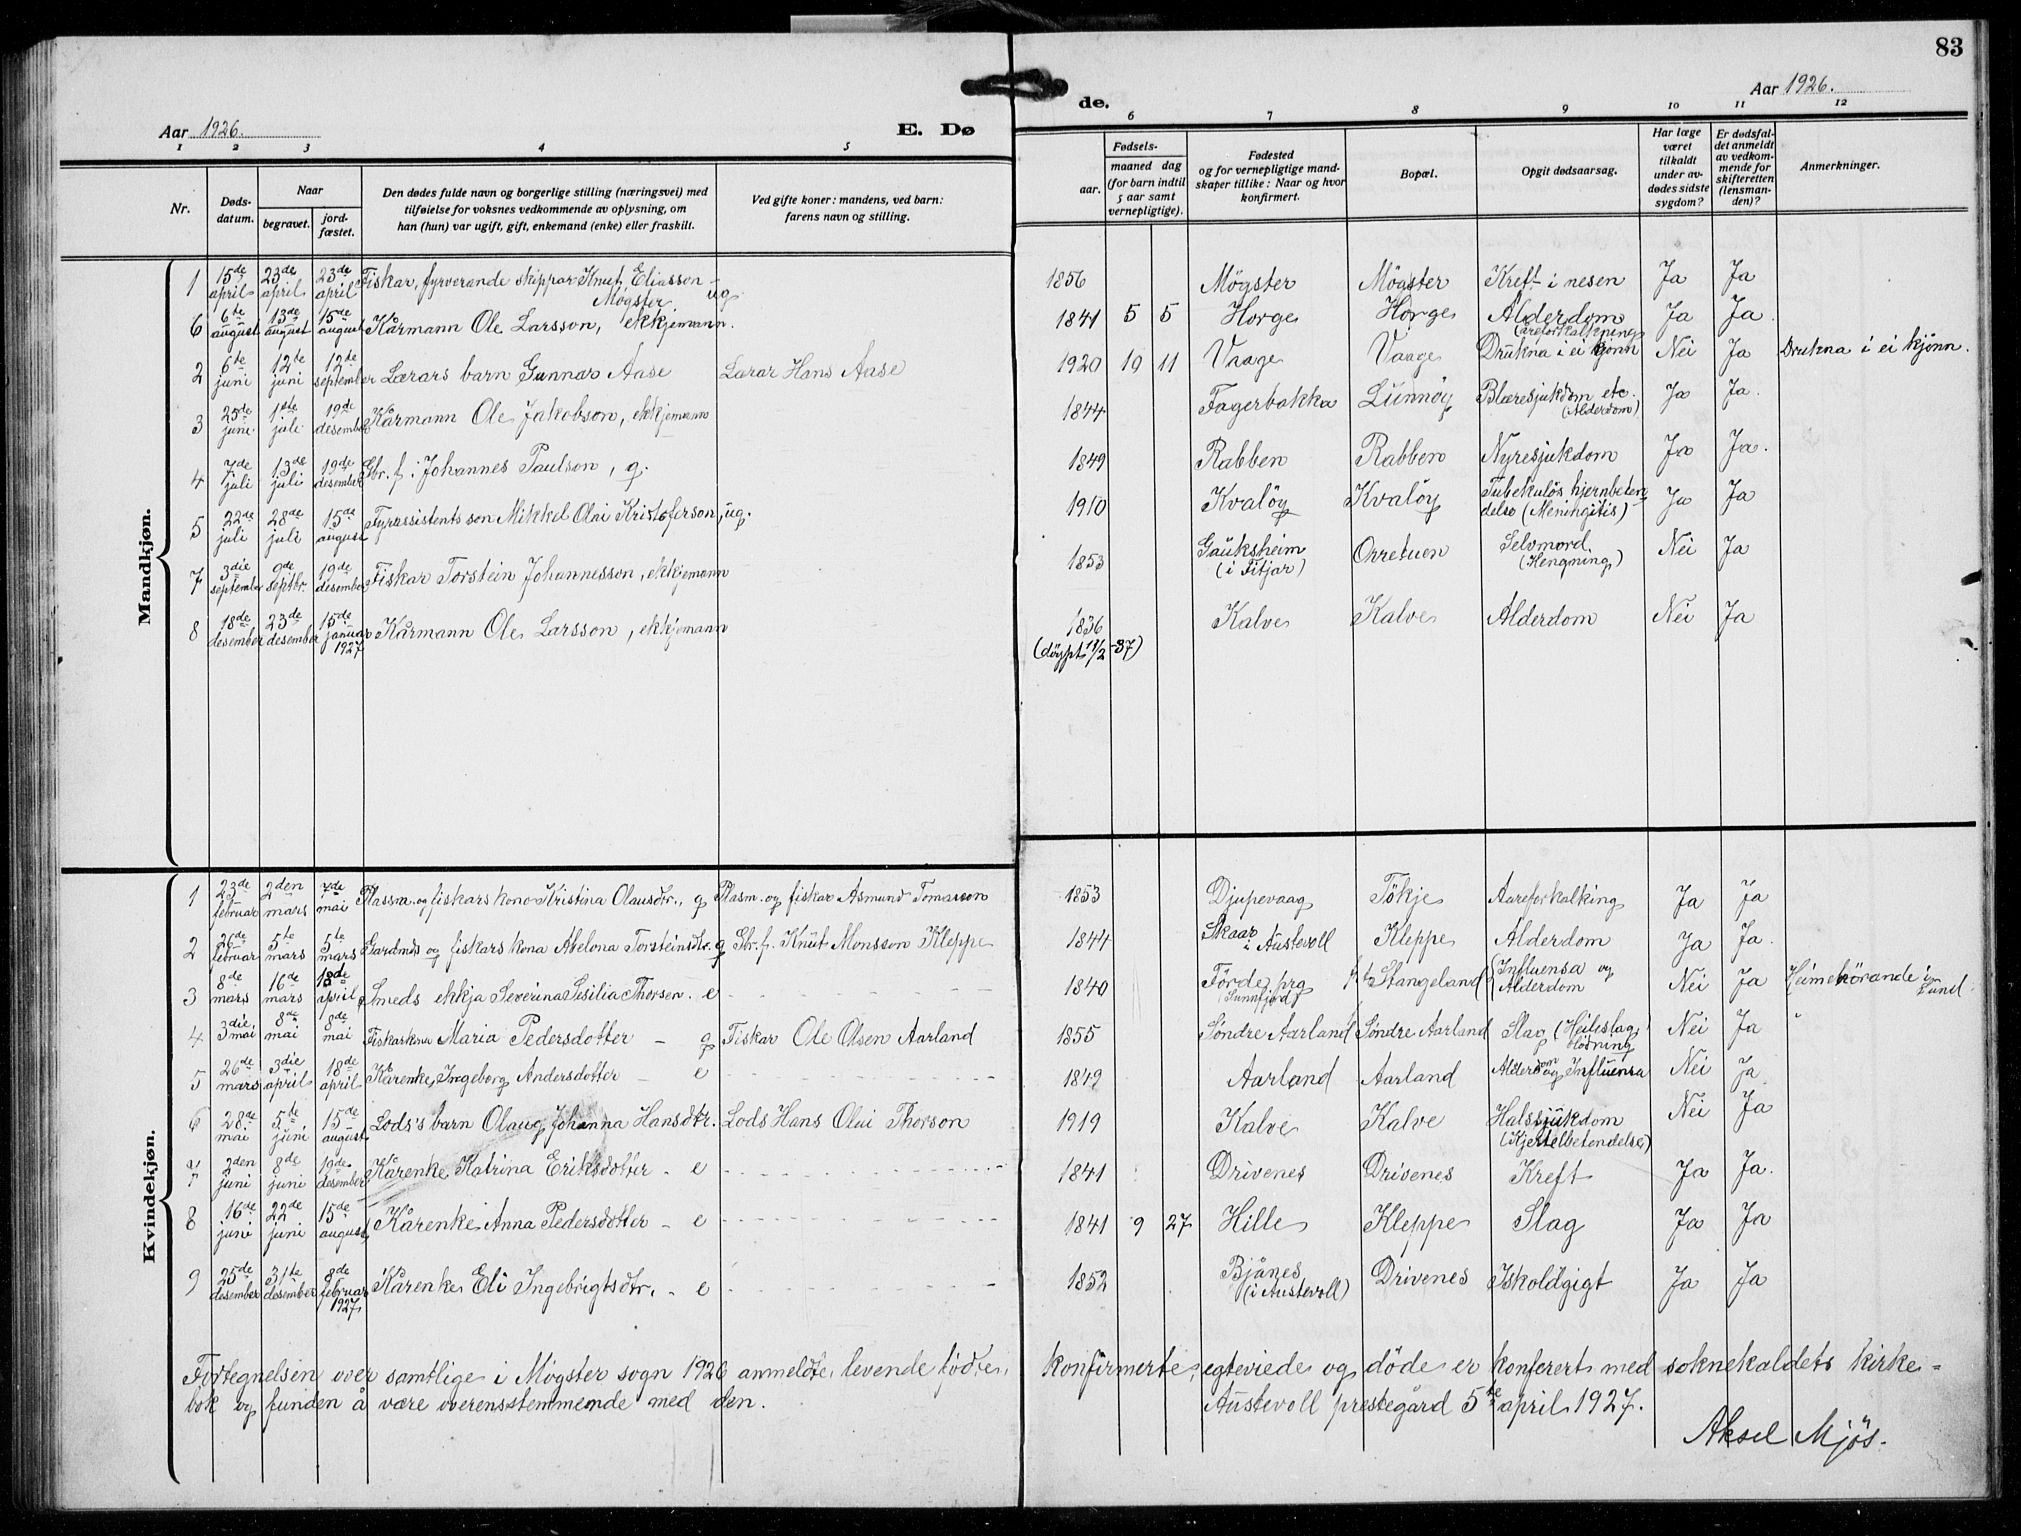 83
Aar 1926.
E. Dø
de.
Aar 1926.
1 2 3 4 5
6 7 8 9 10 11 12
Nr.
Døds-
datum.
Naar
begravet.
jord-
fæstet.
Den dødes fulde navn og borgerlige stilling (næringsvei) med
tilføielse for voksnes vedkommende av oplysning, om
han (hun) var ugift, gift, enkemand (enke) eller fraskilt.
Ved gifte koner: mandens, ved barn:
farens navn og stilling.
Fødsels-
aar.
maaned dag
(for barn indtil
5 aar samt
vernepligtige).
Fødested
og for vernepligtige mand-
skaper tillike: Naar og hvor
konfirmert.
Bopæl.
Opgit dødsaarsag.
Har læge
været
tilkaldt
under av-
dødes sidste
sygdom?
Er dødsfal-
det anmeldt
av vedkom-
mende for
skifteretten
(lensman-
den)?
Anmerkninger.
Mandkjøn.
1 15de april 23de april 23de april Fiskar, fyrverande skippar Knut Eliasson Møgster ug 1856 Møgster Møgster Kreft i nesen Ja Ja
6 6te august 13de august 15de august Kårmann Ole Larsson, ekkjemann. 1841 5 5 Horge Horge Alderdom (åreforkalkning) Ja Ja.
2 6te juni 12te juni 12te september Lærars barn Gunnar Aase Lærar Hans Aase 1920 10 11 Vaage Vaage Drukna i ei kjønn Nei Ja Drukna i ei kjønn.
3 25de juni 1ste juli 19de desember Kårmann Ole Jakobson, ekkjemann 1844 Fagerbakka Lunnøy Blæresjukdom etc. (Alderdom) Ja Ja.
4 7de juli 13de juli 19de desember Gbr. f: Johannes Paulson, g. 1849 Rabben Rabben Nyresjukdom Ja Ja.
5 22de juli 28de juli 15de august Fyrassistents son Mikkel Olai Kristoferson, ug. 1910 Kvaløy Kvaløy Tuberkuløs hjernbeten- delse (Meningitis) Ja Ja
7 3die september 9de septbr. 19de desember Fiskar Torstein Johannesson, ekkjemann 1853 Gauksheim (i Fitjar) Orretuen Selvmord. (Hengning) Nei Ja
8 18de desember 23de desember 15de januar 1927 Kårmann Ole Larsson, ekkjemann 1836 (døypt 11/2 -37) Kalve Kalve Alderdom Nei Ja
Kvindekjøn.
1 23de februar 2den mars 7de mai Plassm. og fiskars kona Kristina Olausdtr., g Plasm. og fiskar Asmund Tomasson 1853 Djupevaag Tøkje Aareforkalking Ja Ja
2 26de februar 5te mars 5te mars Gardmds og fiskars kona Abelona Torsteinsdtr. g Gbr. f. Knut Monsson Kleppe 1844 Skaar i Austevoll Kleppe Alderdom Ja Ja.
3 8de mars 16de mars 18de april Smeds ekkja Severina Sesilia Thorsen. e 1840 Førde prg (Sunnfjord) Stangeland Influensa og Alderdom Nei Ja Heimehörande i Lund
4 3die mai 8de mai 8de mai Fiskarkona Maria Pedersdotter - g Fiskar Ole Olsen Aarland 1855 Søndre Aarland Søndre Aarland Slag (Heileslag, blødning Nei Ja "
5 26de mars 3die april 18de april Kårenke Ingeborg Andersdotter - e 1849 Aarland Aarland Alderdom og Influensa Nei Ja
6 28de mai 5te juni 15de august Lods's barn Olaug Johanna Hansdtr. Lods Hans Olai Thorson 1919 Kalve Kalve Halssjukdom (Kjertelbetendelse) Nei Ja
7 2den juni 8de juni 19de desember Kårenke Katrina Eriksdotter - e 1841 Drivenes Drivenes Kreft Ja Ja.
8 16de juni 22de juni 15de august Kårenke Anna Pedersdotter - e 1841 9 27 Hille Kleppe Slag Ja Ja
9 25de desember 31te desember 8de februar 1927 Kårenke Eli Ingebrigtsdtr. - e 1852 Bjånes (i Austevoll) Drivenes Iskoldgigt Ja Ja
Fortegnelsen over samtlige i Møgster sogn 1926 anmeldte, levende fødte, konfirmerte, egteviede og døde er konferert med soknekaldets kirke-
bok og funden å være overensstemmende med den. Austevoll prestegård 5te april 1927.
Aksel Mjøs.